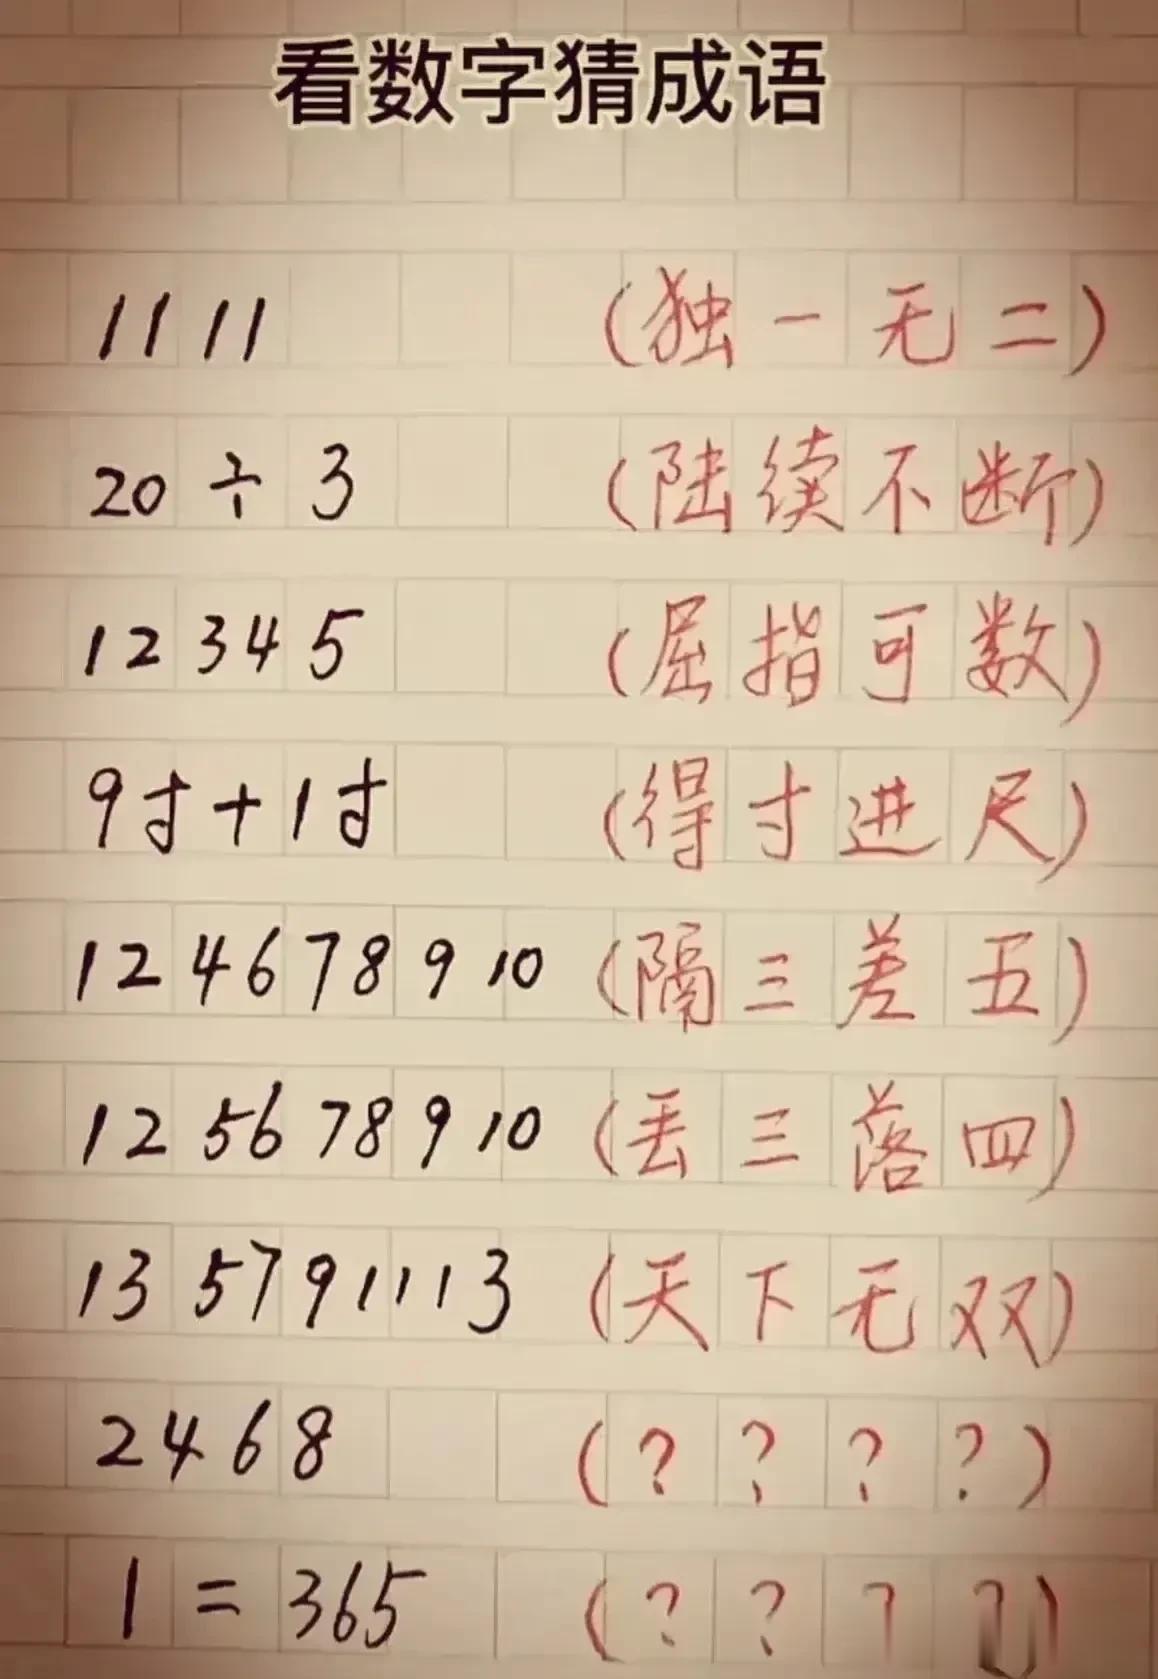 看数字猜成语
1111 (独一无二)
20÷3 (陆续不断)
12345 (屈指可数)
9寸+1寸 (得寸进尺)
124678910 (隔三差五)
125678910 (丢三落四)
135791113 (天下无双)
2468 (????)
1=365 (????)